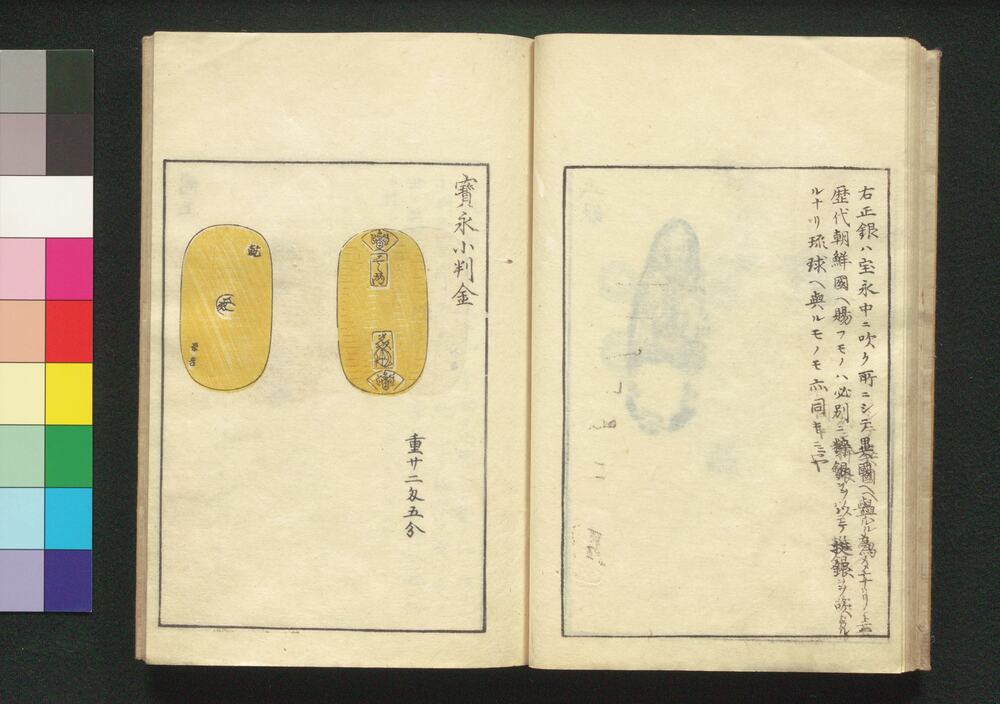 右正銀ハ宝永中ニ吹ク所ニシテ異國ヘ與ル為
歴代朝鮮國ヘ賜フモノハ必別ニ粋銀ヲ以テ挺銀ヲ吹
ルナリ琉球ヘ與ルモノモ亦同キニヤ
寳永小判金
重廿二匁五分
乾